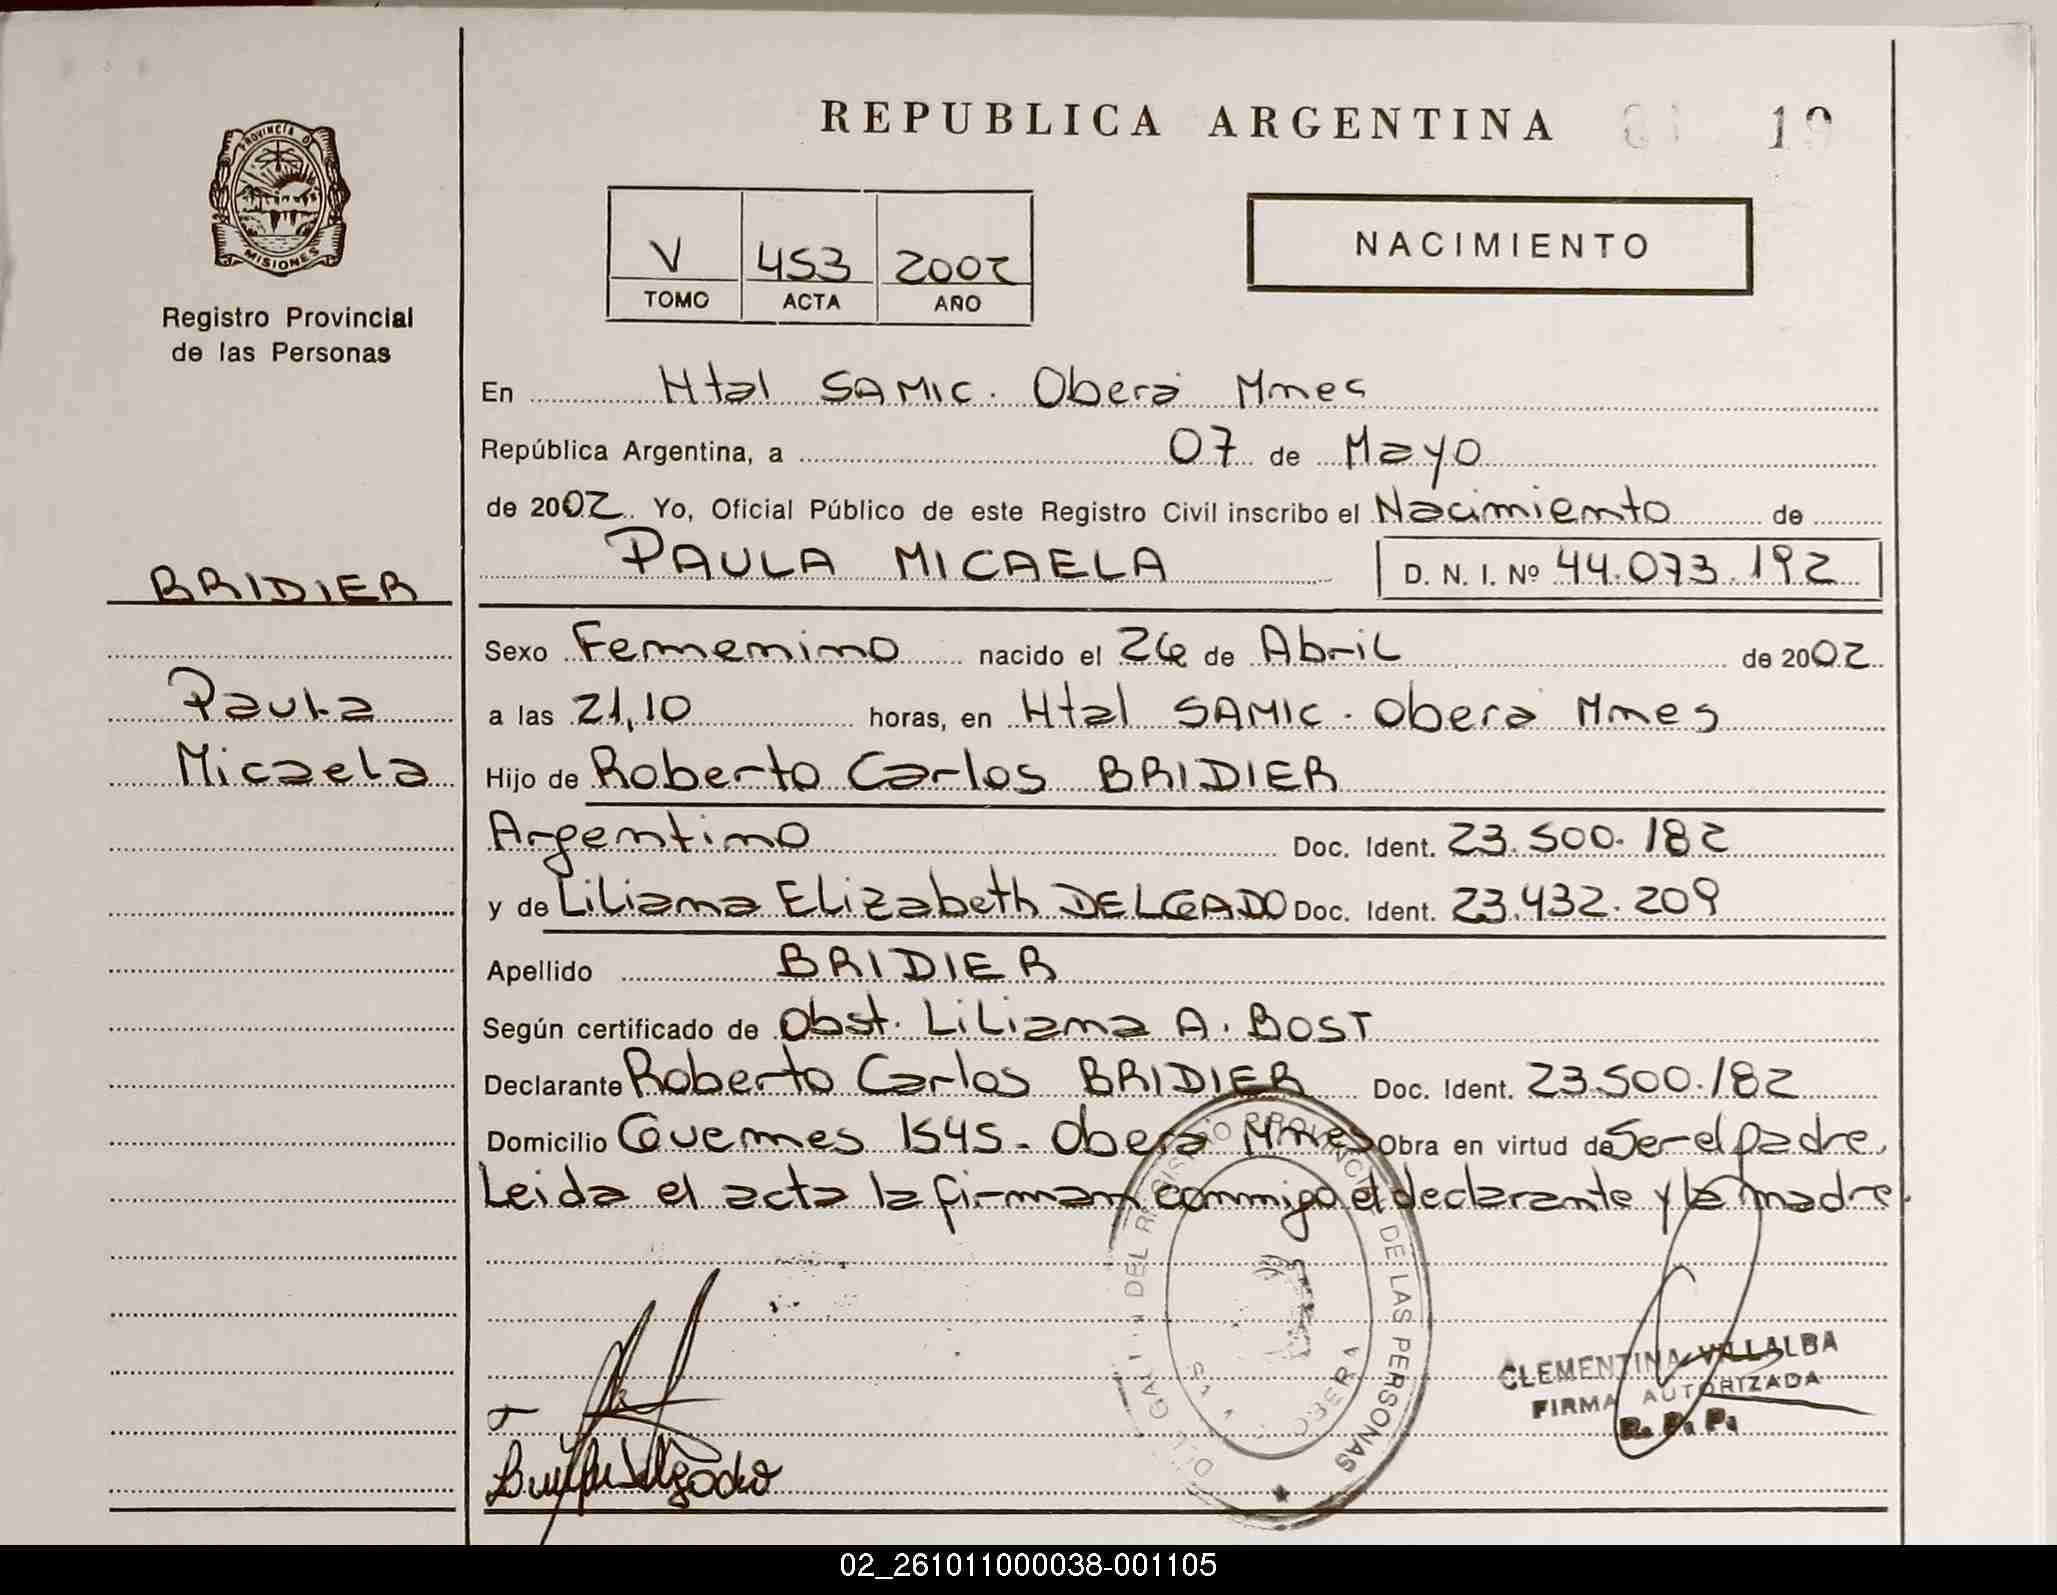 REPUBLICA ARGENTINA
PROVINCIA D MISIONES
Registro Provincial
de las Personas
V 453 2002
TOMO ACTA AÑO
NACIMIENTO
En Htal SAMIC. Oberá Mnes
República Argentina, a 07 de Mayo
de 2002. Yo, Oficial Público de este Registro Civil inscribo el Nacimiento de
PAULA MICAELA D. N. I. Nº 44.073.192
BRIDIER
Paula
Micaela
Sexo Femenino nacido el 26 de Abril de 2002
a las 21,10 horas, en Htal SAMIC. Oberá Mnes
Hijo de Roberto Carlos BRIDIER
Argentino Doc. Ident. 23.500.182
y de Liliana Elizabeth DELGADO Doc. Ident. 23.432.209
Apellido BRIDIER
Según certificado de Obst. Liliana A. BOST
Declarante Roberto Carlos BRIDIER Doc. Ident. 23.500.182
Domicilio Guemes 1545 - Oberá Mnes Obra en virtud de Ser el padre.
Leida el acta la firman conmigo el declarante y la madre.
DEL REGISTRO PROVINCIAL DE LAS PERSONAS
CLEMENTINA VILLALBA
FIRMA AUTORIZADA
R. P. P.
02_261011000038-001105